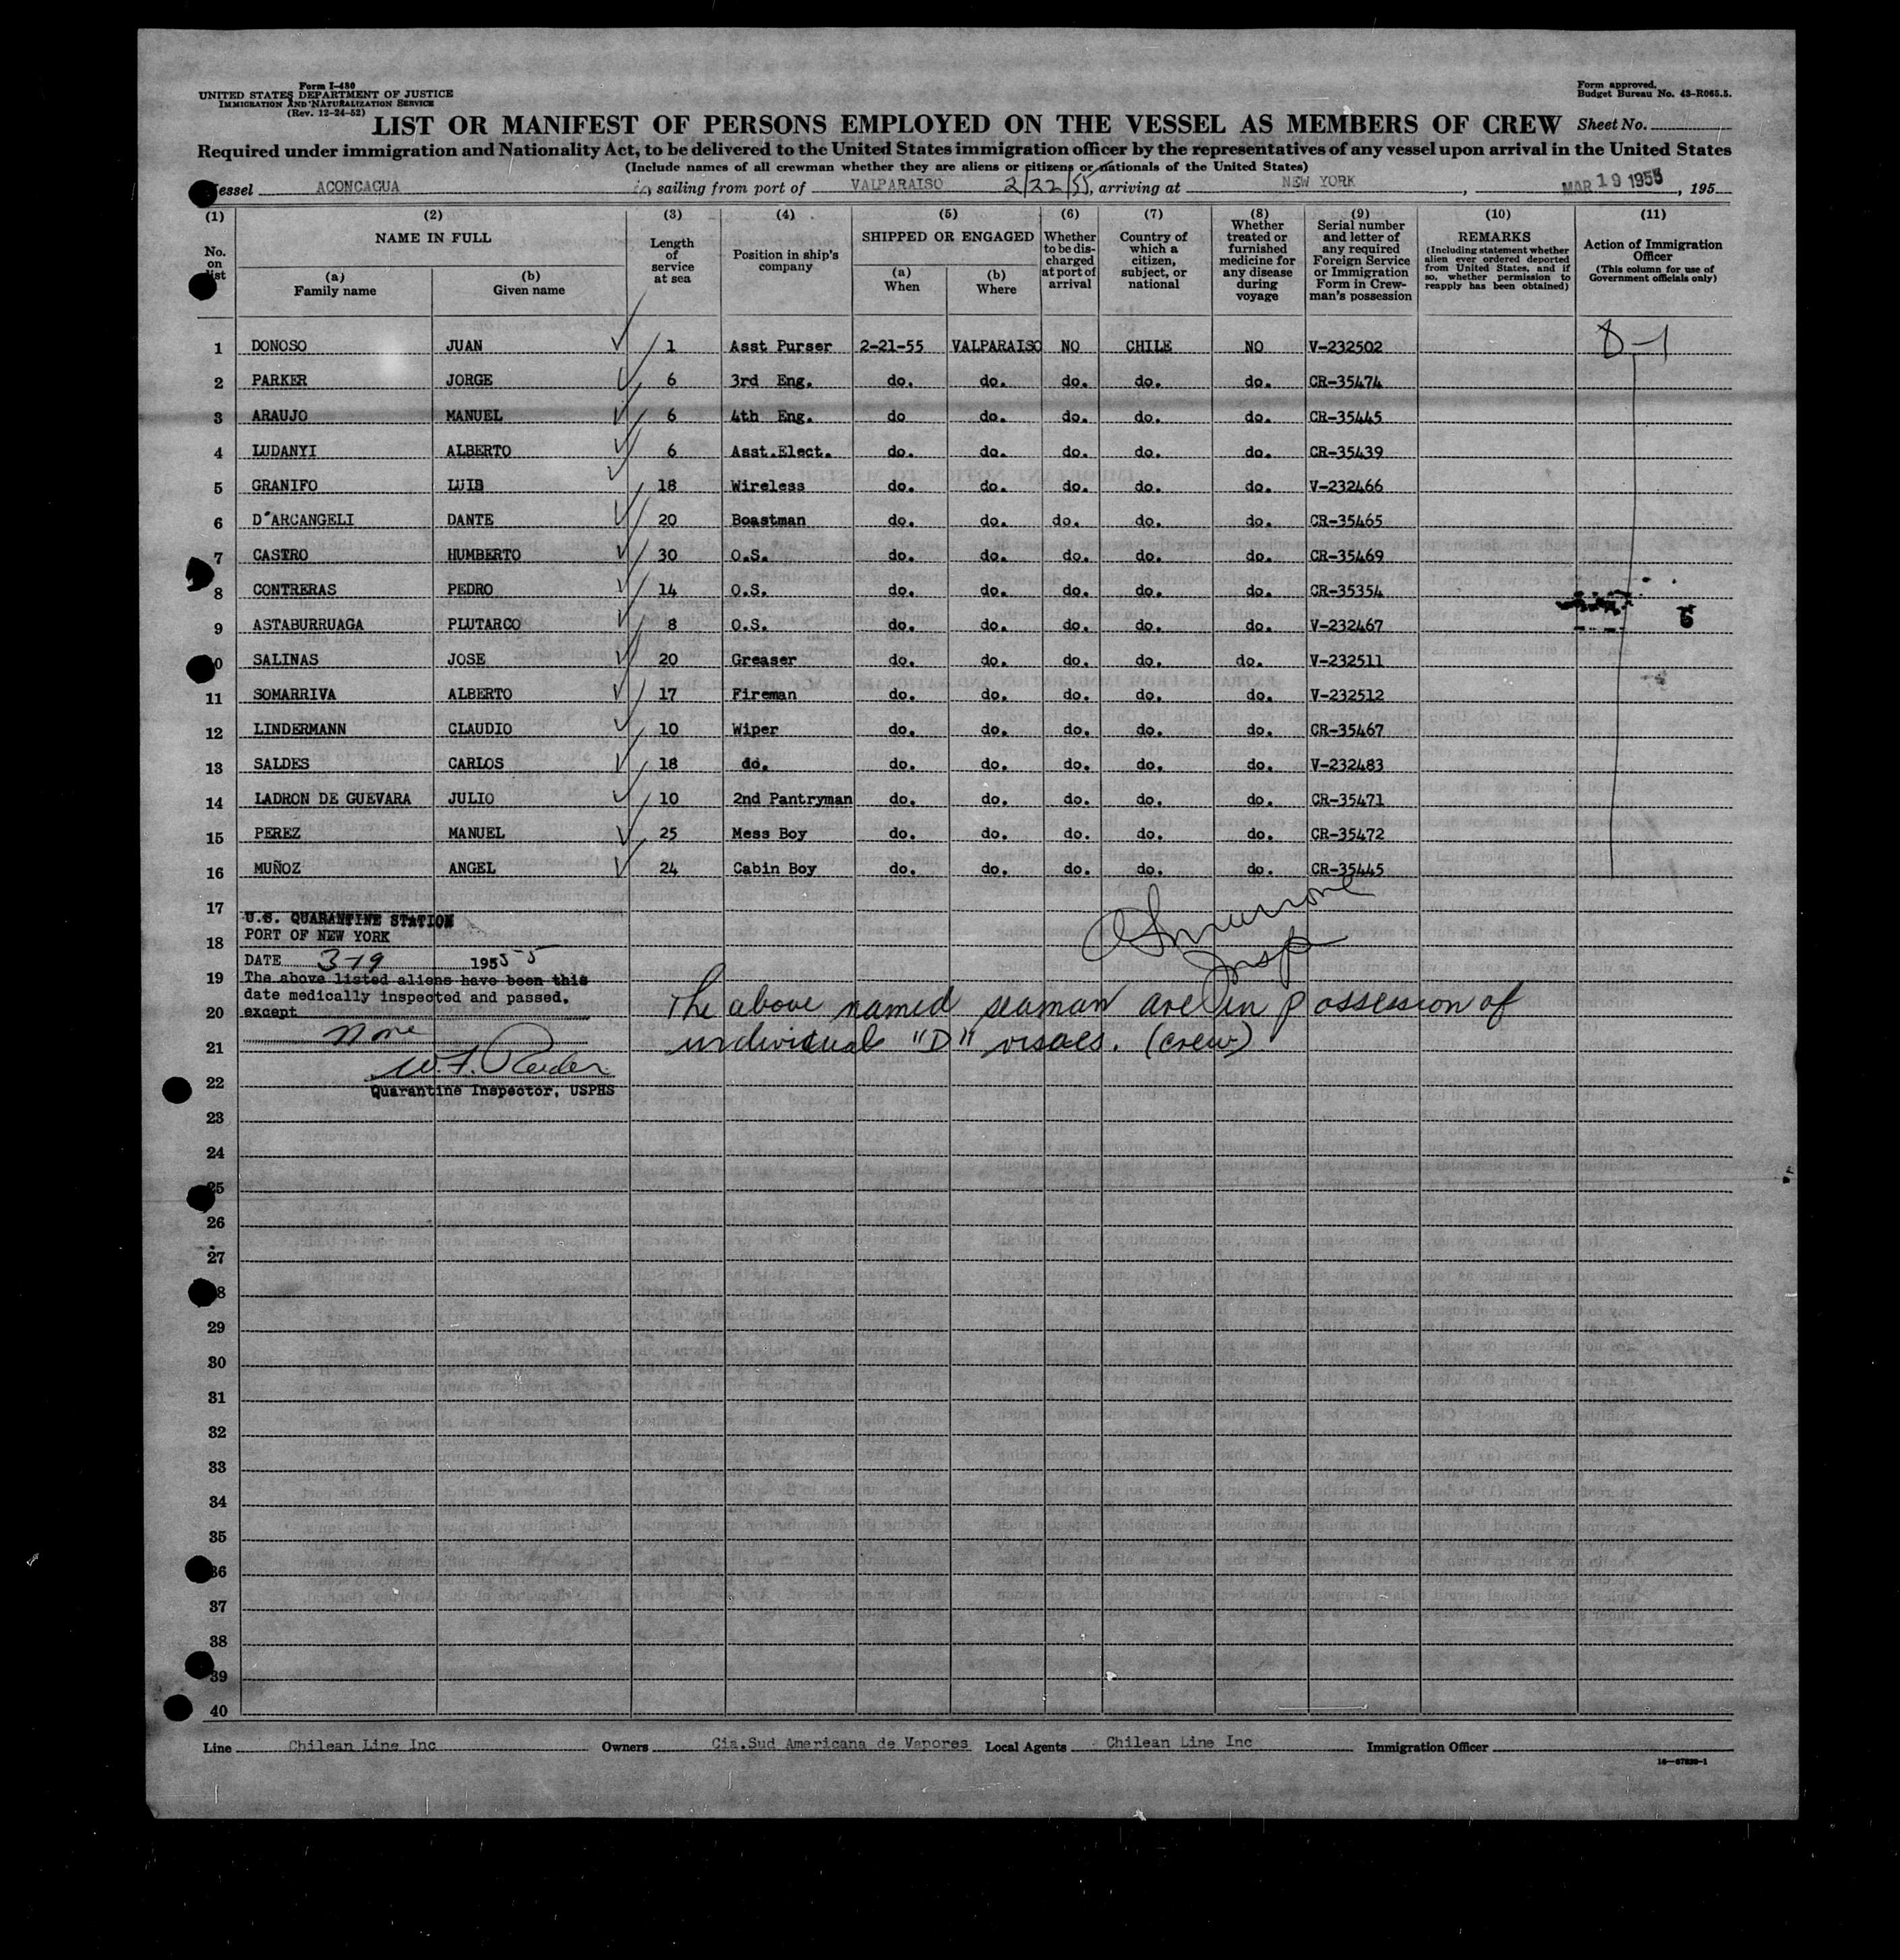 Form I-480
UNITED STATES DEPARTMENT OF JUSTICE
IMMIGRATION AND NATURALIZATION SERVICE
(Rev. 12-24-52)
Form approved.
Budget Bureau No. 43-R065.5.
LIST OR MANIFEST OF PERSONS EMPLOYED ON THE VESSEL AS MEMBERS OF CREW Sheet No.
Required under immigration and Nationality Act, to be delivered to the United States immigration officer by the representatives of any vessel upon arrival in the United States
(Include names of all crewman whether they are aliens or citizens or nationals of the United States)
Vessel ACONCAGUA sailing from port of VALPARAISO 2/22/55, arriving at NEW YORK, MAR 19 1955, 195
(1) (2) (3) (4) (5) (6) (7) (8) (9) (10) (11)
No. on list
NAME IN FULL
(a) Family name
(b) Given name
Length of service at sea
Position in ship's company
SHIPPED OR ENGAGED
(a) When
(b) Where
Whether to be discharged at port of arrival
Country of which a citizen, subject, or national
Whether treated or furnished medicine for any disease during voyage
Serial number and letter of any required Foreign Service or Immigration Form in Crewman's possession
REMARKS
(Including statement whether alien ever ordered deported from United States, and if so, whether permission to reapply has been obtained)
Action of Immigration Officer
(This column for use of Government officials only)
1 DONOSO JUAN 1 Asst Purser 2-21-55 VALPARAISO NO CHILE NO V-232502 D-1
2 PARKER JORGE 6 3rd Eng. do. do. do. do. do. CR-35474
3 ARAUJO MANUEL 6 4th Eng. do do. do. do. do. CR-35445
4 LUDANYI ALBERTO 6 Asst.Elect. do. do. do. do. do. CR-35439
5 GRANIFO LUIS 18 Wireless do. do. do. do. do. V-232466
6 D'ARCANGELI DANTE 20 Boastman do. do. do. do. do. CR-35465
7 CASTRO HUMBERTO 30 O.S. do. do. do. do. do. CR-35469
8 CONTRERAS PEDRO 14 O.S. do. do. do. do. do. CR-35354
9 ASTABURRUAGA PLUTARCO 8 O.S. do. do. do. do. do. V-232467
10 SALINAS JOSE 20 Greaser do. do. do. do. do. V-232511
11 SOMARRIVA ALBERTO 17 Fireman do. do. do. do. do. V-232512
12 LINDERMANN CLAUDIO 10 Wiper do. do. do. do. do. CR-35467
13 SALDES CARLOS 18 do. do. do. do. do. do. V-232483
14 LADRON DE GUEVARA JULIO 10 2nd Pantryman do. do. do. do. do. CR-35471
15 PEREZ MANUEL 25 Mess Boy do. do. do. do. do. CR-35472
16 MUÑOZ ANGEL 24 Cabin Boy do. do. do. do. do. CR-35445
17
U.S. QUARANTINE STATION
PORT OF NEW YORK
18
DATE 3-19 1955-5
Insp
19
The above listed aliens have been this
date medically inspected and passed,
20
except
The above named seaman are in possession of
none
21
individual "D" visaes. (crew)
22
Quarantine Inspector, USPHS
23
24
25
26
27
28
29
30
31
32
33
34
35
36
37
38
39
40
Line Chilean Line Inc Owners Cia.Sud Americana de Vapores Local Agents Chilean Line Inc Immigration Officer